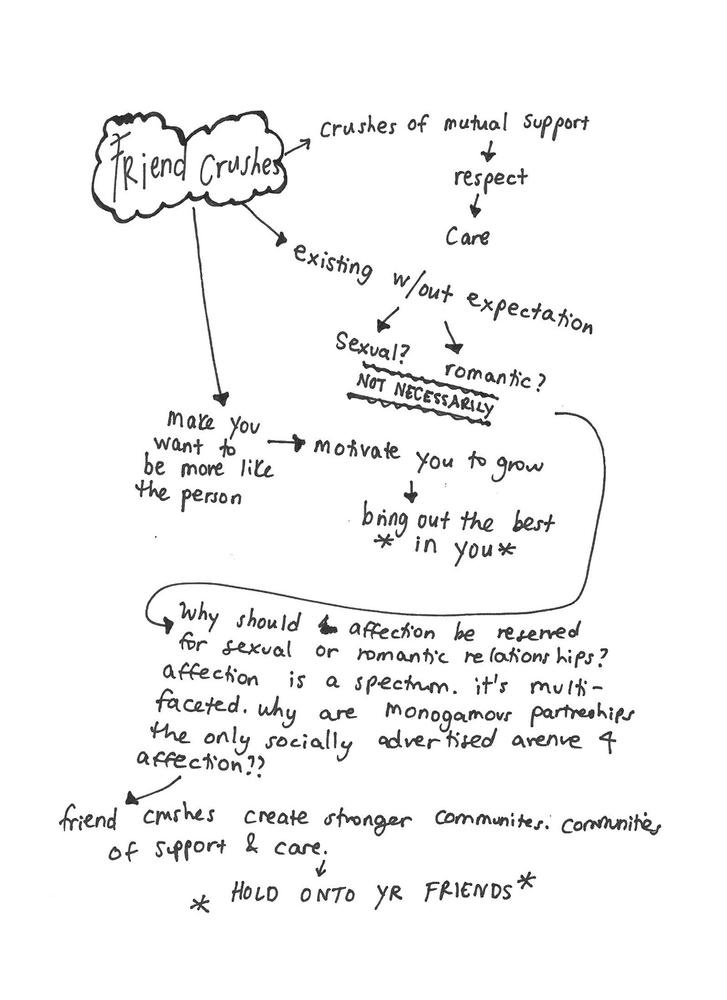 Friend Crushes
crushes of mutual support
respect
Care
existing w/out expectation
Sexual?
romantic?
NOT NECESSARILY
make you
want to
be more like
the person
motivate you to grow
bring out the best
* in you *
Why should affection be reserved
for sexual or romantic relationships?
affection is a spectrum. it's multi-
faceted. why are monogamous partneships
the only socially advertised avenue 4
affection??
friend crushes create stronger communites. communities
of support & care.
* HOLD ONTO YR FRIENDS *